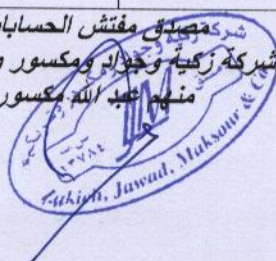 مصدق مفتش الحسابات
شركة زكية وجواد ومكسور و
منهم عبد الله مكسور
شركة
١٣٧٨٤
JM
Zukieh, Jawad, Maksour & Co